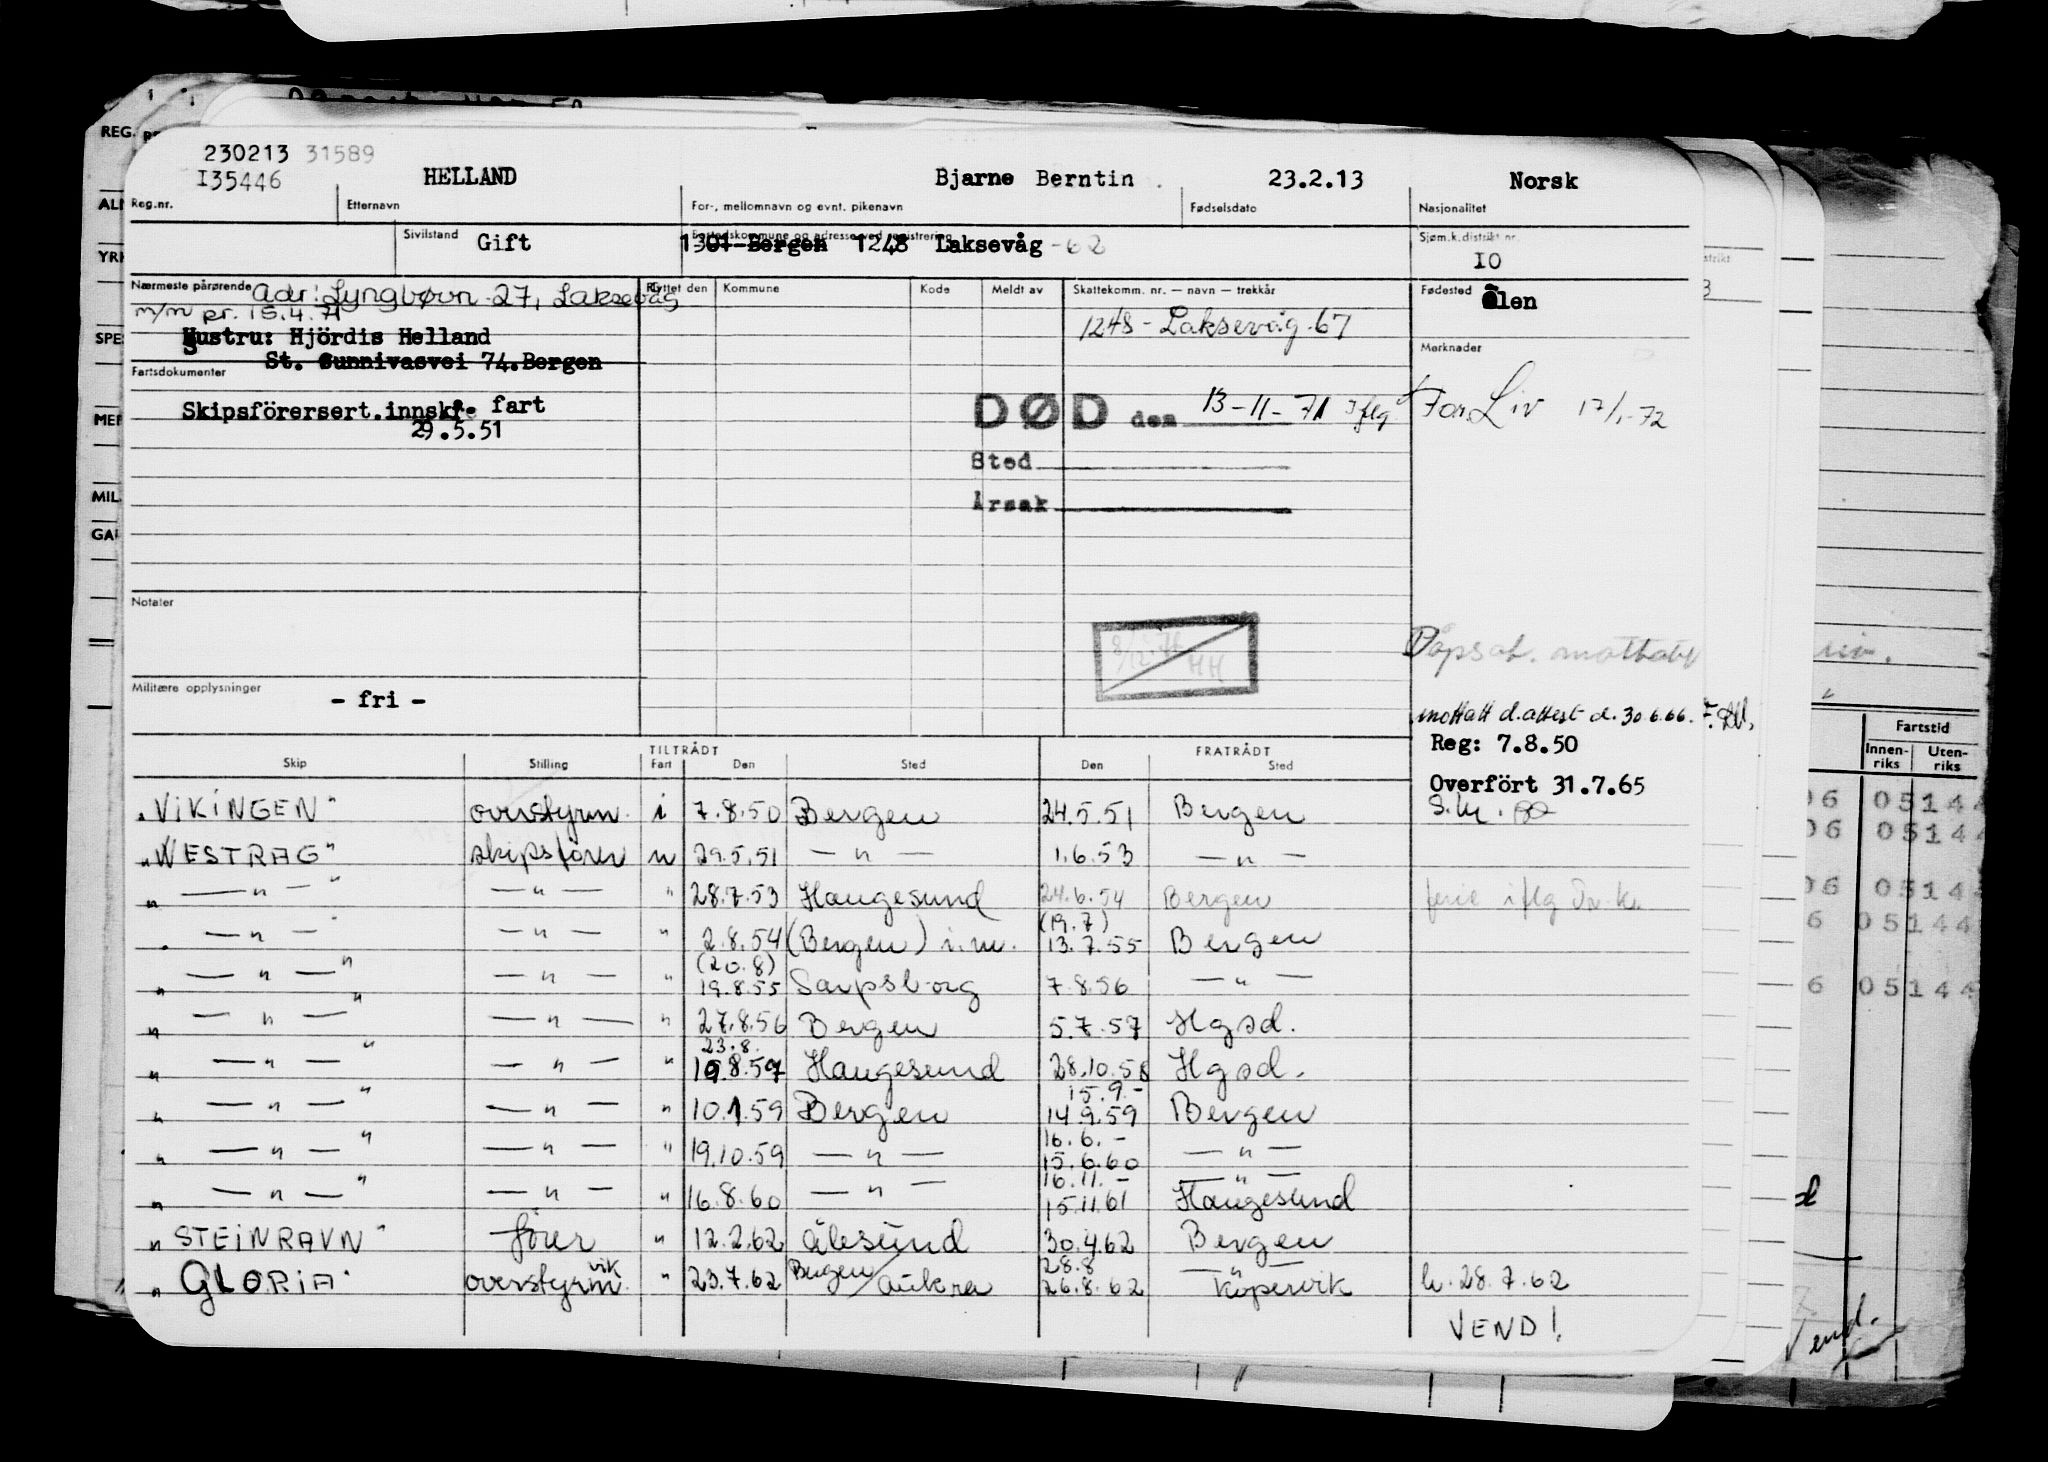 230213 31589
I35446 HELLAND Bjarne Berntin 23.2.13 Norsk
Reg.nr. Etternavn For-, mellomnavn og evnt. pikenavn Fødselsdato Nasjonalitet
Sivilstand Gift Bostedskommune og adresse ved registrering 1301 Bergen 1248 Laksevåg -62 Sjøm.k.distrikt nr. IO
Nærmeste pårørende Adr: Lyngbøvn. 27, Laksevåg Flyttet den Kommune Kode Meldt av Skattekomm. nr. — navn — trekkår Fødested Ølen
m/m pr. 15.4.71
Hustru: Hjördis Helland 1248 - Laksevåg-67
St. Sunnivasvei 74.Bergen Merknader
Fartsdokumenter
Skipsförersert.innskr. fart
29.5.51
DØD den 13-11-71 iflg For. Liv 17/1-72
Sted
Årsak
Notater
8/12.76
HH
Dopsat. mottatt
Militære opplysninger
- fri -
mottatt d.attest d. 30.6.66.
Reg: 7.8.50
Overfört 31.7.65
S.M.
TILTRÅDT FRATRÅDT
Skip Stilling Fart Den Sted Den Sted
"VIKINGEN" overstyrm. i 7.8.50 Bergen 24.5.51 Bergen
"WESTRAG" skipsförer n 29.5.51 — " — 1.6.53 — " —
" — " — " — " — " 28.7.53 Haugesund 24.6.54 Bergen ferie iflg
(19.7)
" — " — " — " — " 2.8.54 (Bergen) i.m. 13.7.55 Bergen
(20.8)
" — " — " — " — " 19.8.55 Sarpsborg 7.8.56 — " —
" — " — " — " — " 27.8.56 Bergen 5.7.57 Hgsd.
23.8.
" — " — " — " — " 19.8.57 Haugesund 28.10.58 Hgsd.
15.9.-
" — " — " — " — " 10.1.59 Bergen 14.9.59 Bergen
16.6.-
" — " — " — " — " 19.10.59 — " — 15.6.60 — " —
16.11.- — " —
" — " — " — " — " 16.8.60 — " — 15.11.61 Haugesund
"STEINRAVN" förer " 12.2.62 Ålesund 30.4.62 Bergen
28.8 — " —
"GLORIA" overstyrm. vik " 23.7.62 Bergen/Aukra 26.8.62 Köpervik h. 28.7.62
VEND!
REG.
YRK
SPES
MIL.
Fartstid
Innen-riks Uten-riks
06 05144
06 05144
06 05144
6 05144
6 05144
Vend.